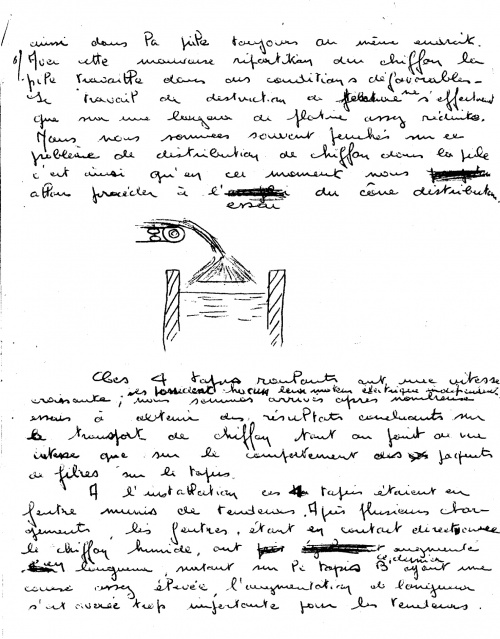 ainsi dans la pile toujours au même endroit.
Avec cette mauvaise répartition du chiffon la
pile travaille dans des conditions défavorables -
Le travail de destruction de ne s'effectuant
que sur une largeur de platine assez réduite.
Nous nous sommes souvent penchés sur ce
problème de distribution de chiffon dans la pile
c'est ainsi qu'en ce moment nous
allons procéder à l' du cône distributeur.
essai
Les 4 tapis roulants ont une vitesse
ils possèdent chacun leur moteur électrique indépendant
croissante ; nous sommes arrivés après nombreux
essais à obtenir des résultats concluants sur
le transport de chiffon tant au point de vue
vitesse que sur le comportement des paquets
de fibres sur le tapis.
A l'installation ces 4 tapis étaient en
feutre munis de tendeurs. Après plusieurs char-
gements, les feutres, étant en contact direct avec
le chiffon humide, ont augmenté
ce dernier
longueur, surtout sur le tapis B ayant une
course assez élevée, l'augmentation de longueur
s'est avérée trop importante pour les tendeurs.